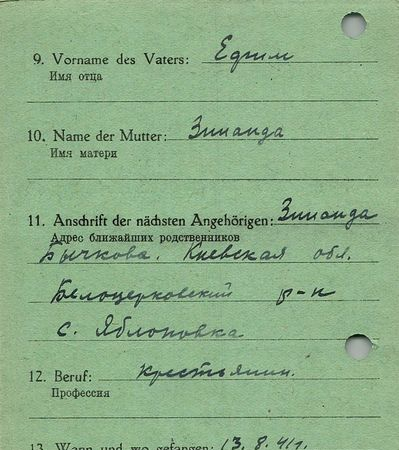 9. Vorname des Vaters: Ефим
Имя отца
10. Name der Mutter: Зинаида
Имя матери
11. Anschrift der nächsten Angehörigen: Зинаида
Адрес ближайших родственников
Бычкова. Киевская обл.
Белоцерковский р-н
с. Яблоновка
12. Beruf: крестьянин.
Профессия
13. Wann und wo gefangen: 13. 8. 41г.